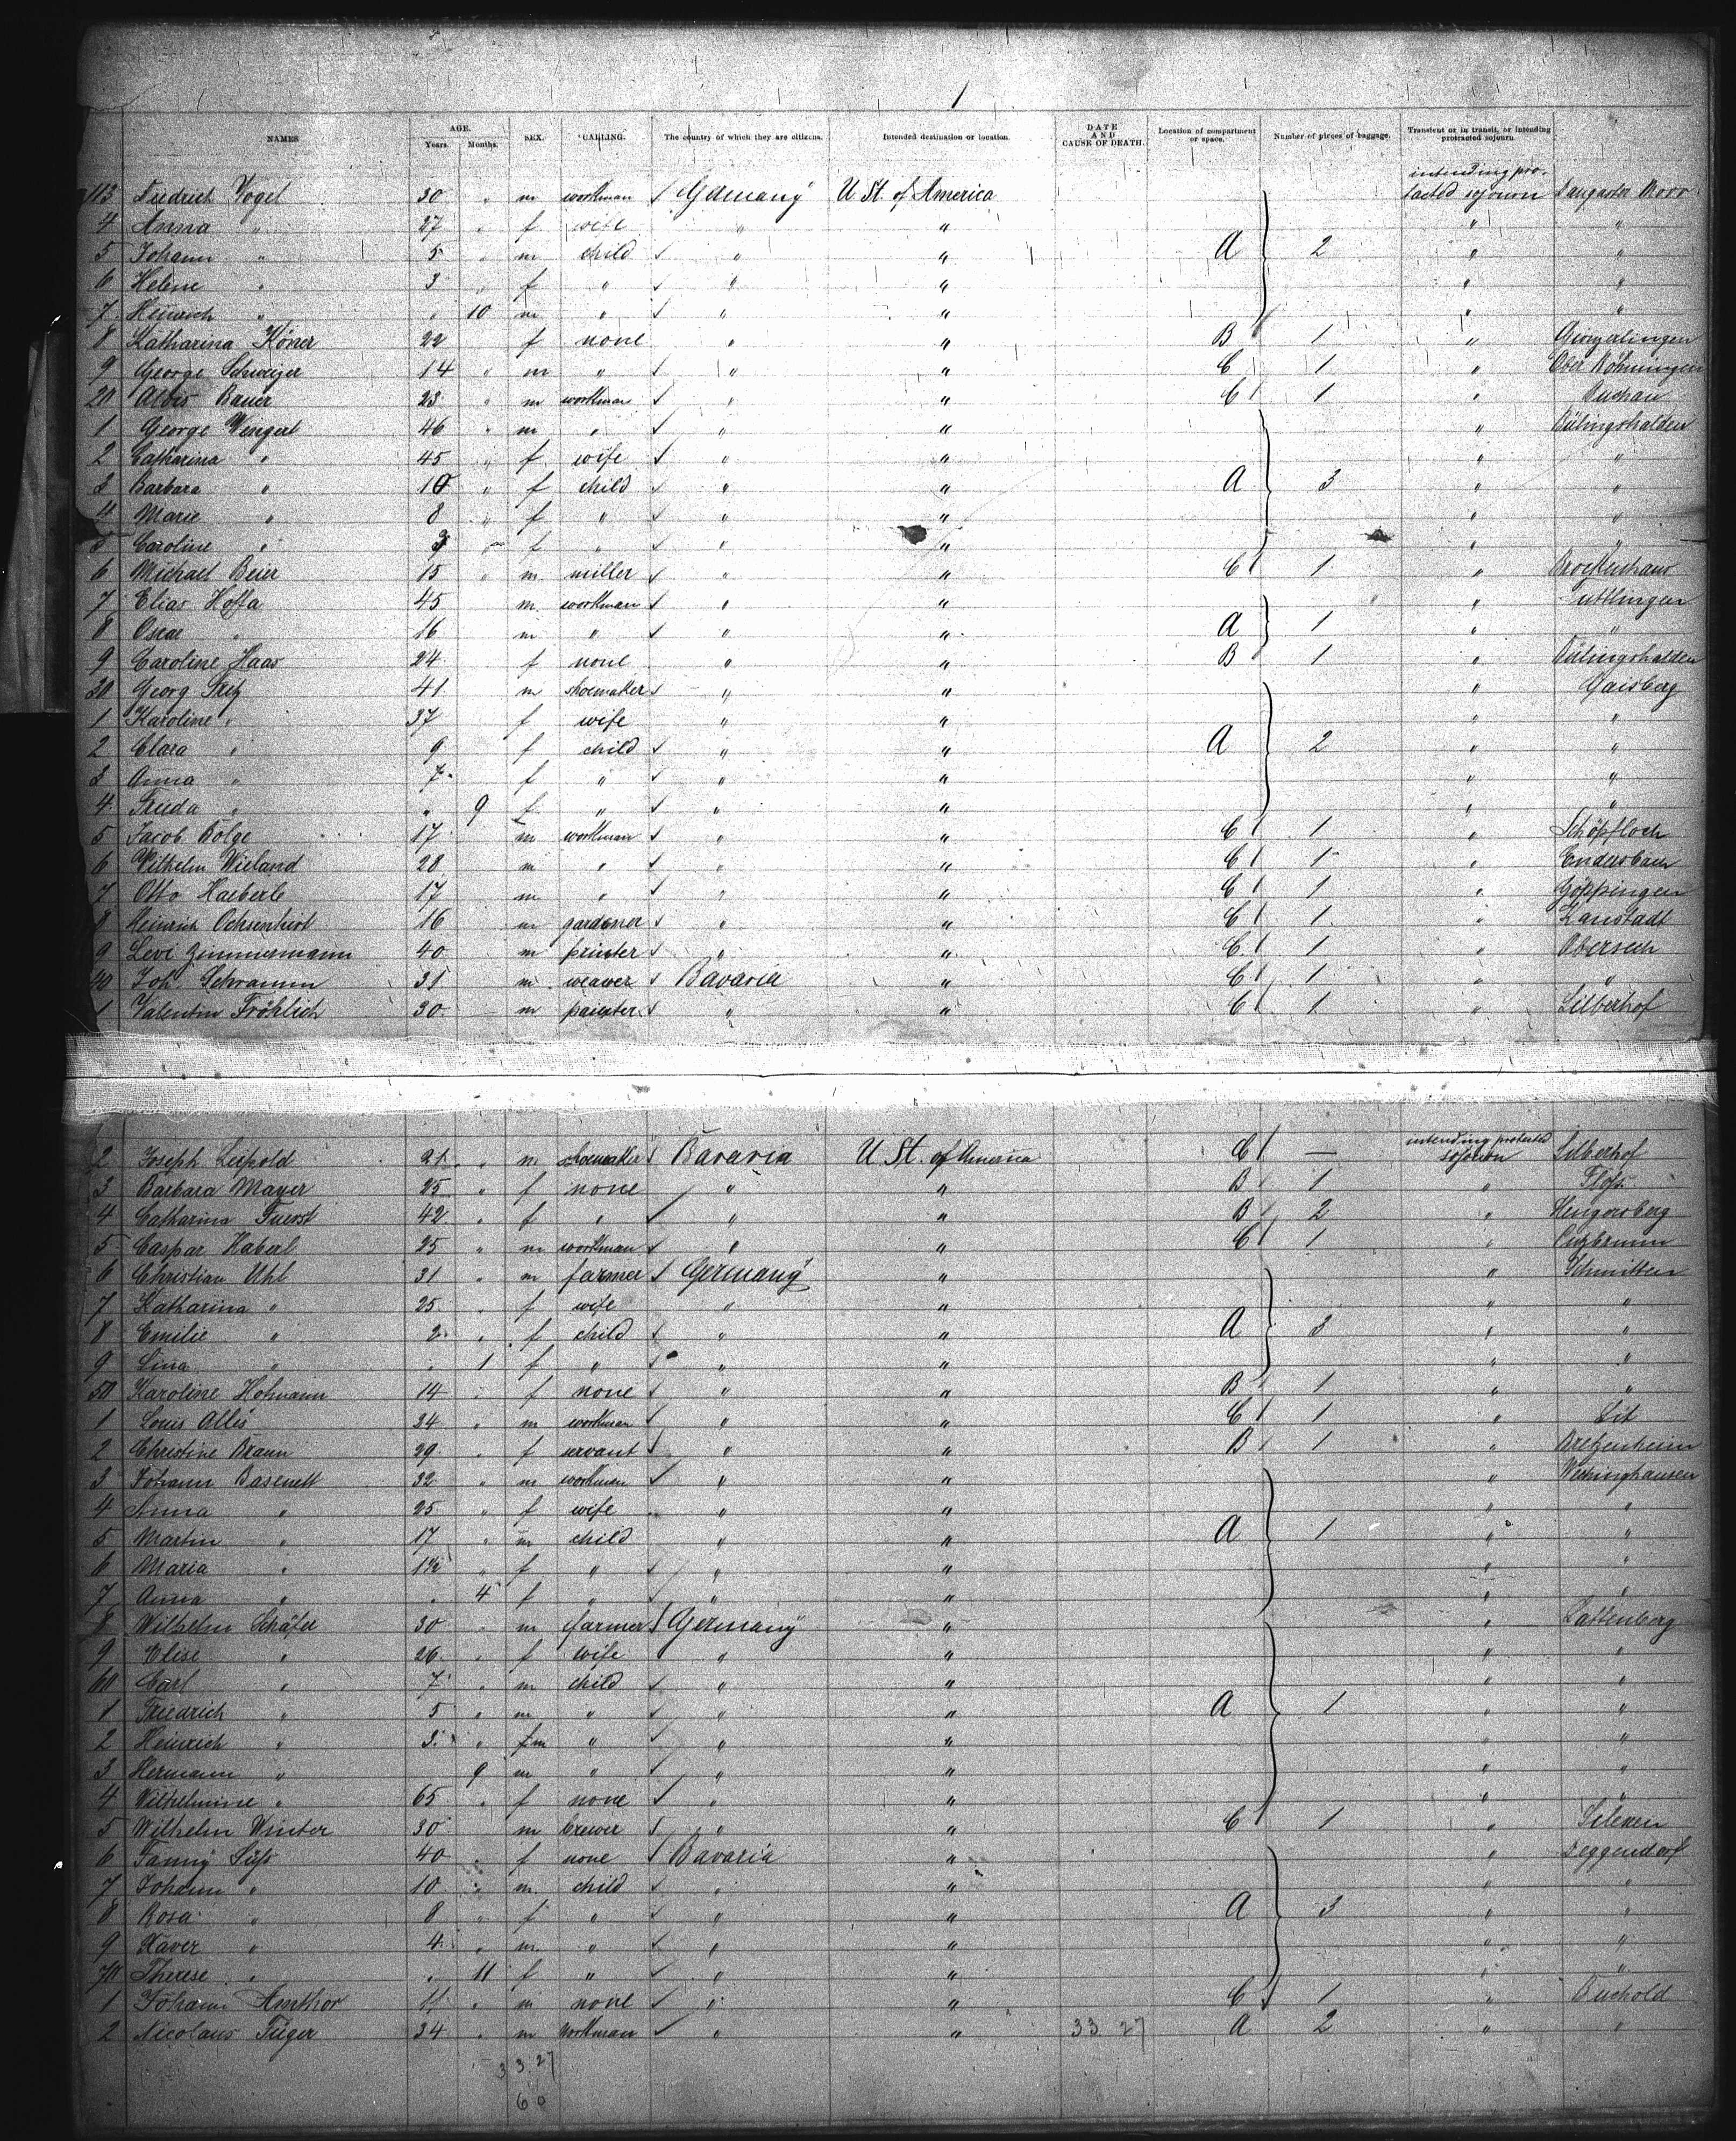 1
NAMES AGE. Years. Months. SEX. CALLING. The country of which they are citizens. Intended destination or location. DATE AND CAUSE OF DEATH. Location of compartment or space. Number of pieces of baggage. Transient or in transit, or intending protracted sojourn.
intending pro-
113 Fredrich Vogel 30 " m workman Germany U. St. of America tacted sojourn Moor
4 Anna " 27 " f wife " " " "
5 Johann " 5 " m child " " A 2 " "
6 Helene " 3 " f " " " " "
7 Heinrich " " 10 m " " " " "
8 Katharina Köner 22 f none " " B 1 "
9 George Schweizer 14 " m " " " C 1 " Ober
20 Alois Bauer 23 " m workman " " C 1 " Buchau
1 George Wengert 46 " m " " " "
2 Catharina " 45 " f wife " " " "
3 Barbara " 10 " f child " " A 3 " "
4 Marie " 8 " f " " " " "
5 Caroline " 3 " f " " " " "
6 Michael Beier 15 " m miller " " C 1 "
7 Elias Hoffa 45 m workman " " " Tuttlingen
8 Oscar " 16 m " " " A 1 " "
9 Caroline Haas 24 f none " " B 1 "
30 Georg Fritz 41 m shoemaker " " " Gaisberg
1 Karoline " 37 f wife " " " "
2 Clara " 9 f child " " A 2 " "
3 Anna " 7 f " " " " "
4 Frieda " " 9 f " " " " "
5 Jacob Bolge 17 m workman " " C 1 " Schöpfloch
6 Wilhelm Wieland 28 m " " " C 1 " Endersbach
7 Otto Haeberle 17 m " " " C 1 " Göppingen
8 Heinrich 16 m gardener " " C 1 " Kanstadt
9 Levi Zimmermann 40 m printer " " C 1 "
40 Joh. Schramm 31 m weaver Bavaria " C 1 " "
1 Valentin Fröhlich 30 m painter " " C 1 " Silberhof
intending protected
2 Joseph Leipold 21 " m shoemaker Bavaria U. St. of America C — sojourn Silberhof
3 Barbara Mayer 25 " f none " " B 1 " Floss
4 Catharina Fuerst 42 " f " " " B 2 " Hengersberg
5 Caspar Haberl 25 " m workman " " C 1 "
6 Christian Uhl 31 " m farmer Germany " " Schmitten
7 Katharina " 25 " f wife " " " "
8 Emilie " 2 " f child " " A 3 " "
9 Lina " " 1 f " " " " "
50 Karoline Hofmann 14 " f none " " B 1 " "
1 Louis 24 " m workman " " C 1 "
2 Christine Braun 29 " f servant " " B 1 " Bretzenheim
3 Johann 32 " m workman " " "
4 Anna " 25 " f wife " " " "
5 Martin " 17 " m child " " A 1 " "
6 Maria " 1½ " f " " " " "
7 Anna " " 4 f " " " " "
8 Wilhelm Schäfer 30 " m farmer Germany " "
9 Elise " 26 " f wife " " " "
60 Carl " 7 " m child " " " "
1 Friedrich " 5 " m " " " A 1 " "
2 Heinrich " 3 " m " " " " "
3 Hermann " 9 m " " " " "
4 Wilhelmine " 65 " f none " " " "
5 Wilhelm Winter 30 m brewer " " C 1 "
6 Fanny Süss 40 " f none Bavaria " " Deggendorf
7 Johann " 10 " m child " " " "
8 Rosa " 8 " f " " " A 3 " "
9 Xaver " 4 " m " " " " "
70 Therese " " 11 f " " " " "
1 Johann Amthor 11 " m none " " C 1 " Buchold
2 Nicolaus Füger 34 " m workman " " 33 27 A 2 " "
3 3.27
60